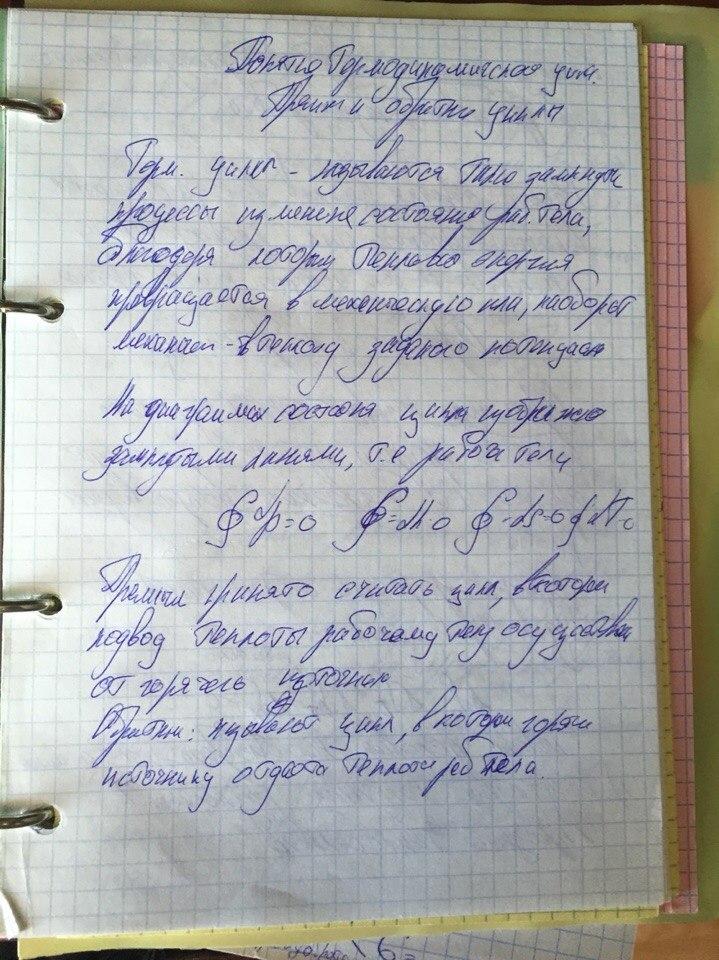 Понятие Термодинамическая цикл.
Прямы и обратны циклы
Терм. цикл - называются
процессы изменения состояния раб. тела,
благодаря которым тепловая энергия
превращается в механическую или, наоборот
механич - в теплоту заданого потенциала
На диаграммах состояния циклы изображаю
замкнутыми линиями, т.е рабоч тела
Прямым принято считать цикл, в котором
подвод теплоты рабочему телу осуществ
от горячего источника
Обратным: называют цикл, в котором горячи
источнику отдаёт теплота раб тела.